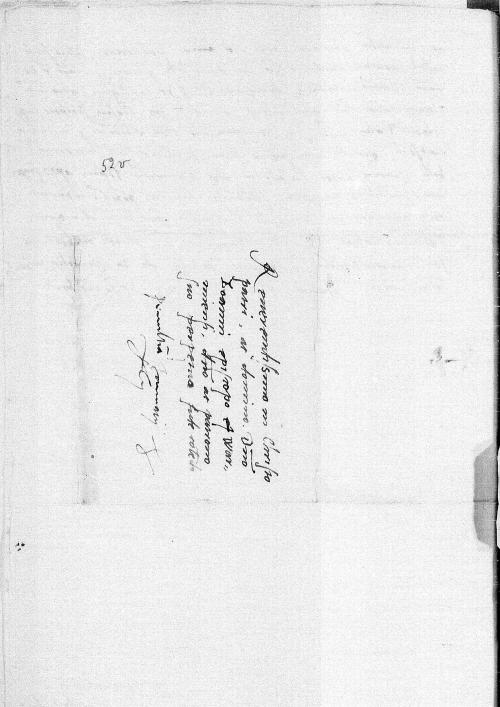 52v
Reuerendissimo in Christo
patri, ac domino Dno
Joanni episcopo Var„
miensi, dno ac patrono
suo perpetua fide colendo